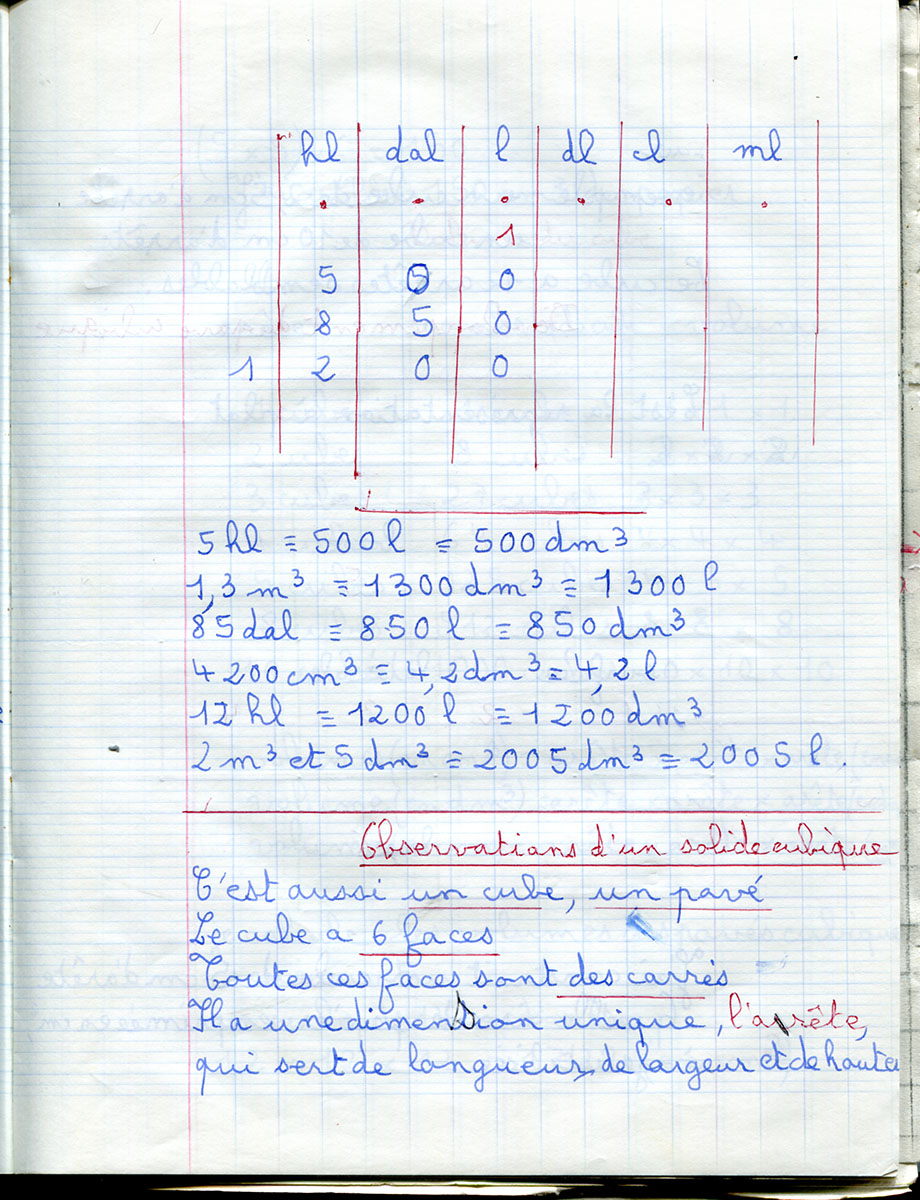 hl dal l dl cl ml
. . . . . .
1
5 0 0
8 5 0
1 2 0 0
5 hl ≡ 500 l ≡ 500 dm³
1,3 m³ ≡ 1300 dm³ ≡ 1300 l
85 dal ≡ 850 l ≡ 850 dm³
4200 cm³ ≡ 4,2 dm³ ≡ 4,2 l
12 hl ≡ 1200 l ≡ 1200 dm³
2 m³ et 5 dm³ ≡ 2005 dm³ ≡ 2005 l.
Observations d'un solide cubique
C'est aussi un cube, un pavé
Le cube a 6 faces
Toutes ces faces sont des carrés
Il a une dimension unique, l'arête,
qui sert de longueur, de largeur et de haute